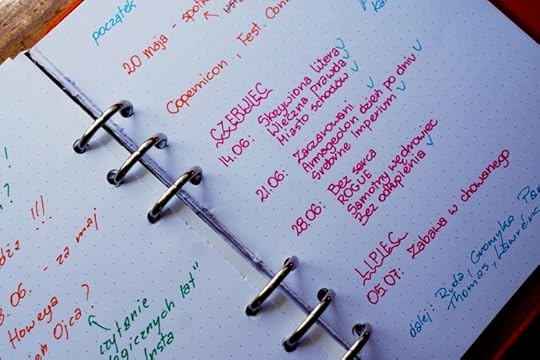 !
?
dzia !!!
8.06. - za maj
Howeya
en Ojca?
czytanie
gicznych lat"
Insta
początek
20 maja - spotk
Copernicon, Fest Com
CZERWIEC
14.06: Skrzywiona litera
Wieczna Prawda
Miasto schodów
21.06: Zaczarowani
Armagedon dzień po dniu
Srebrne Imperium
28.06: Bez serca
ROGUE
Samotny wędrowiec
Bez odkupienia
LIPIEC
05.07: Zabawa w chowanego
dalej: Ruda, Gromyko
Thomas, Lawrenc